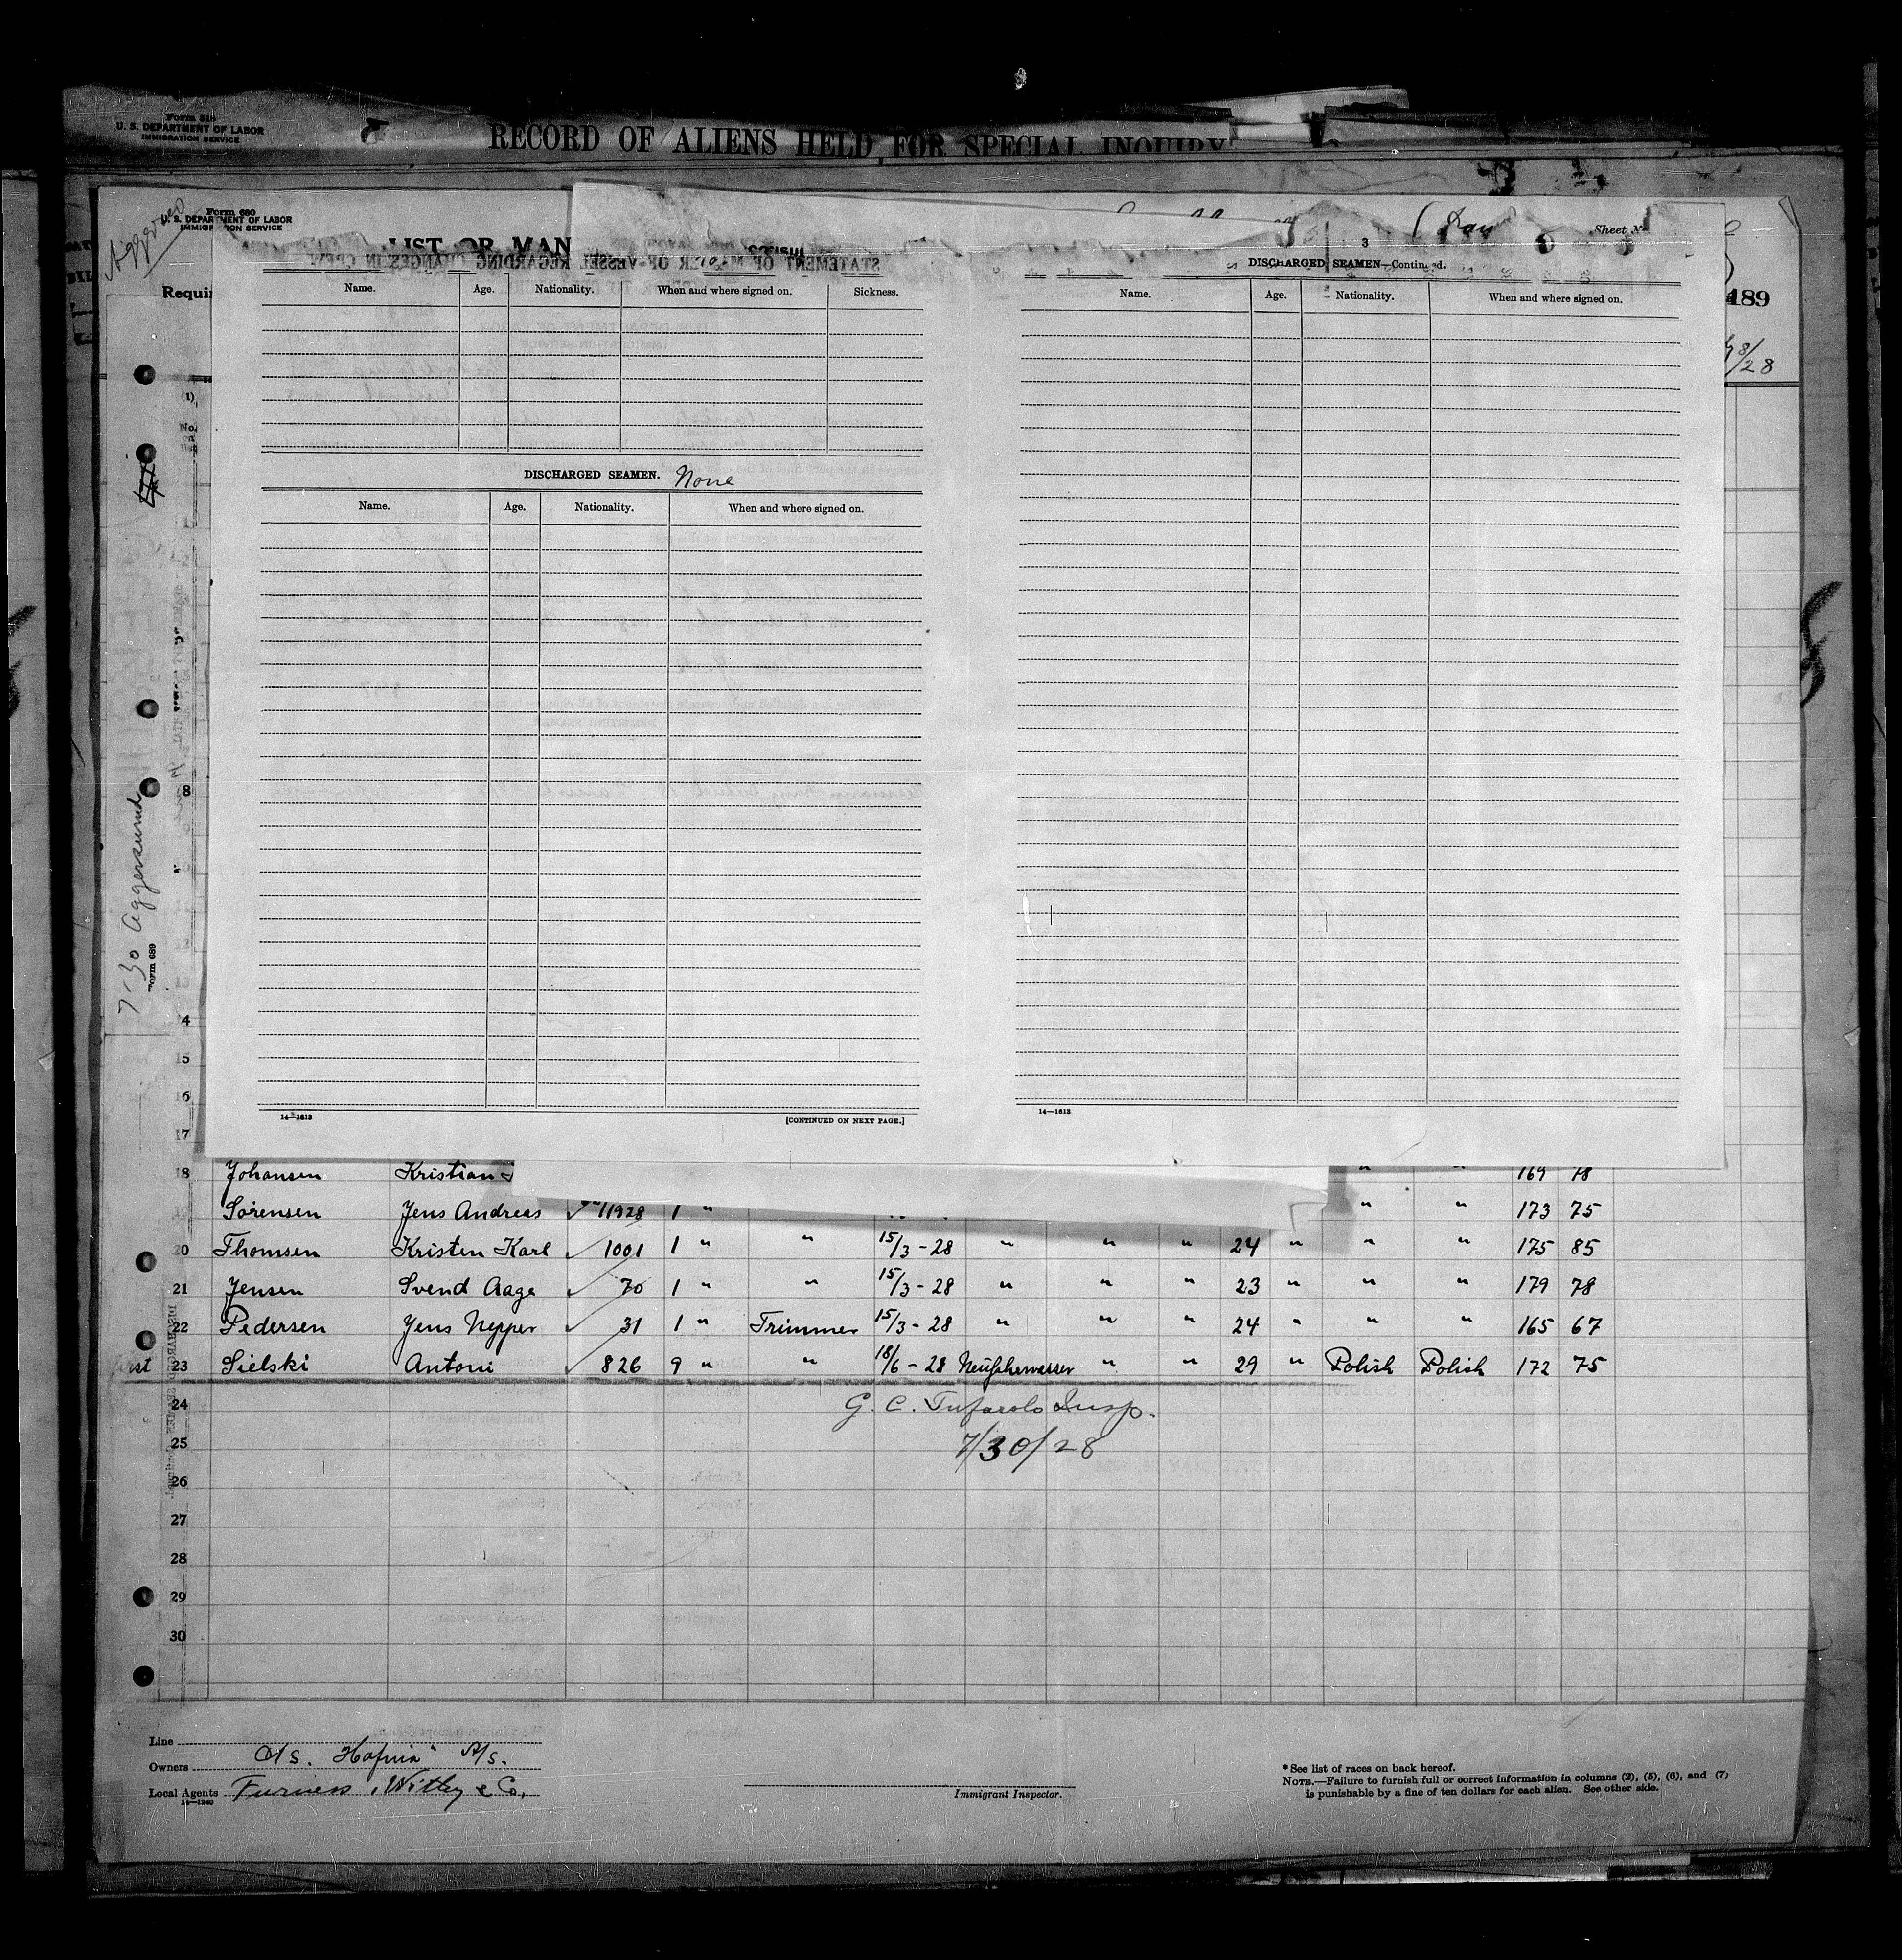 Form 518
U. S. DEPARTMENT OF LABOR
IMMIGRATION SERVICE
RECORD OF ALIENS HELD FOR SPECIAL INQUIRY
Form 680
U. S. DEPARTMENT OF LABOR
IMMIGRATION SERVICE
LIST OR MAN
Requir
Sheet N
3
189
8/28
STATEMENT OF MASTER OF VESSEL REGARDING CHANGES IN CREW
Name. Age. Nationality. When and where signed on. Sickness.
DISCHARGED SEAMEN. None
Name. Age. Nationality. When and where signed on.
14—1613 [CONTINUED ON NEXT PAGE.]
DISCHARGED SEAMEN—Continued.
Name. Age. Nationality. When and where signed on.
14—1613
7-30 Aggersund
Form 689
8
4
15
16
17
18 Johansen Kristian " " 169 78
Sørensen Jens Andreas 11928 1 " " " 173 75
20 Thomsen Kristen Karl ✓ 1001 1 " " 15/3-28 " " " 24 " " " 175 85
21 Jensen Svend Aage ✓ 70 1 " " 15/3-28 " " " 23 " " " 179 78
22 Pedersen Jens Nepper ✓ 31 1 " Trimmer 15/3-28 " " " 24 " " " 165 67
23 Sielski Antoni ✓ 826 9 " " 18/6-28 Neufahrwasser " " 29 " Polish Polish 172 75
24 G. C. Tufarolo Insp.
25 7/30/28
26
27
28
29
30
Line
Owners D/S. Hafnia" A/S.
Local Agents Furness, Withy & Co.
14—1240
Immigrant Inspector.
* See list of races on back hereof.
NOTE.—Failure to furnish full or correct information in columns (2), (5), (6), and (7)
is punishable by a fine of ten dollars for each alien. See other side.